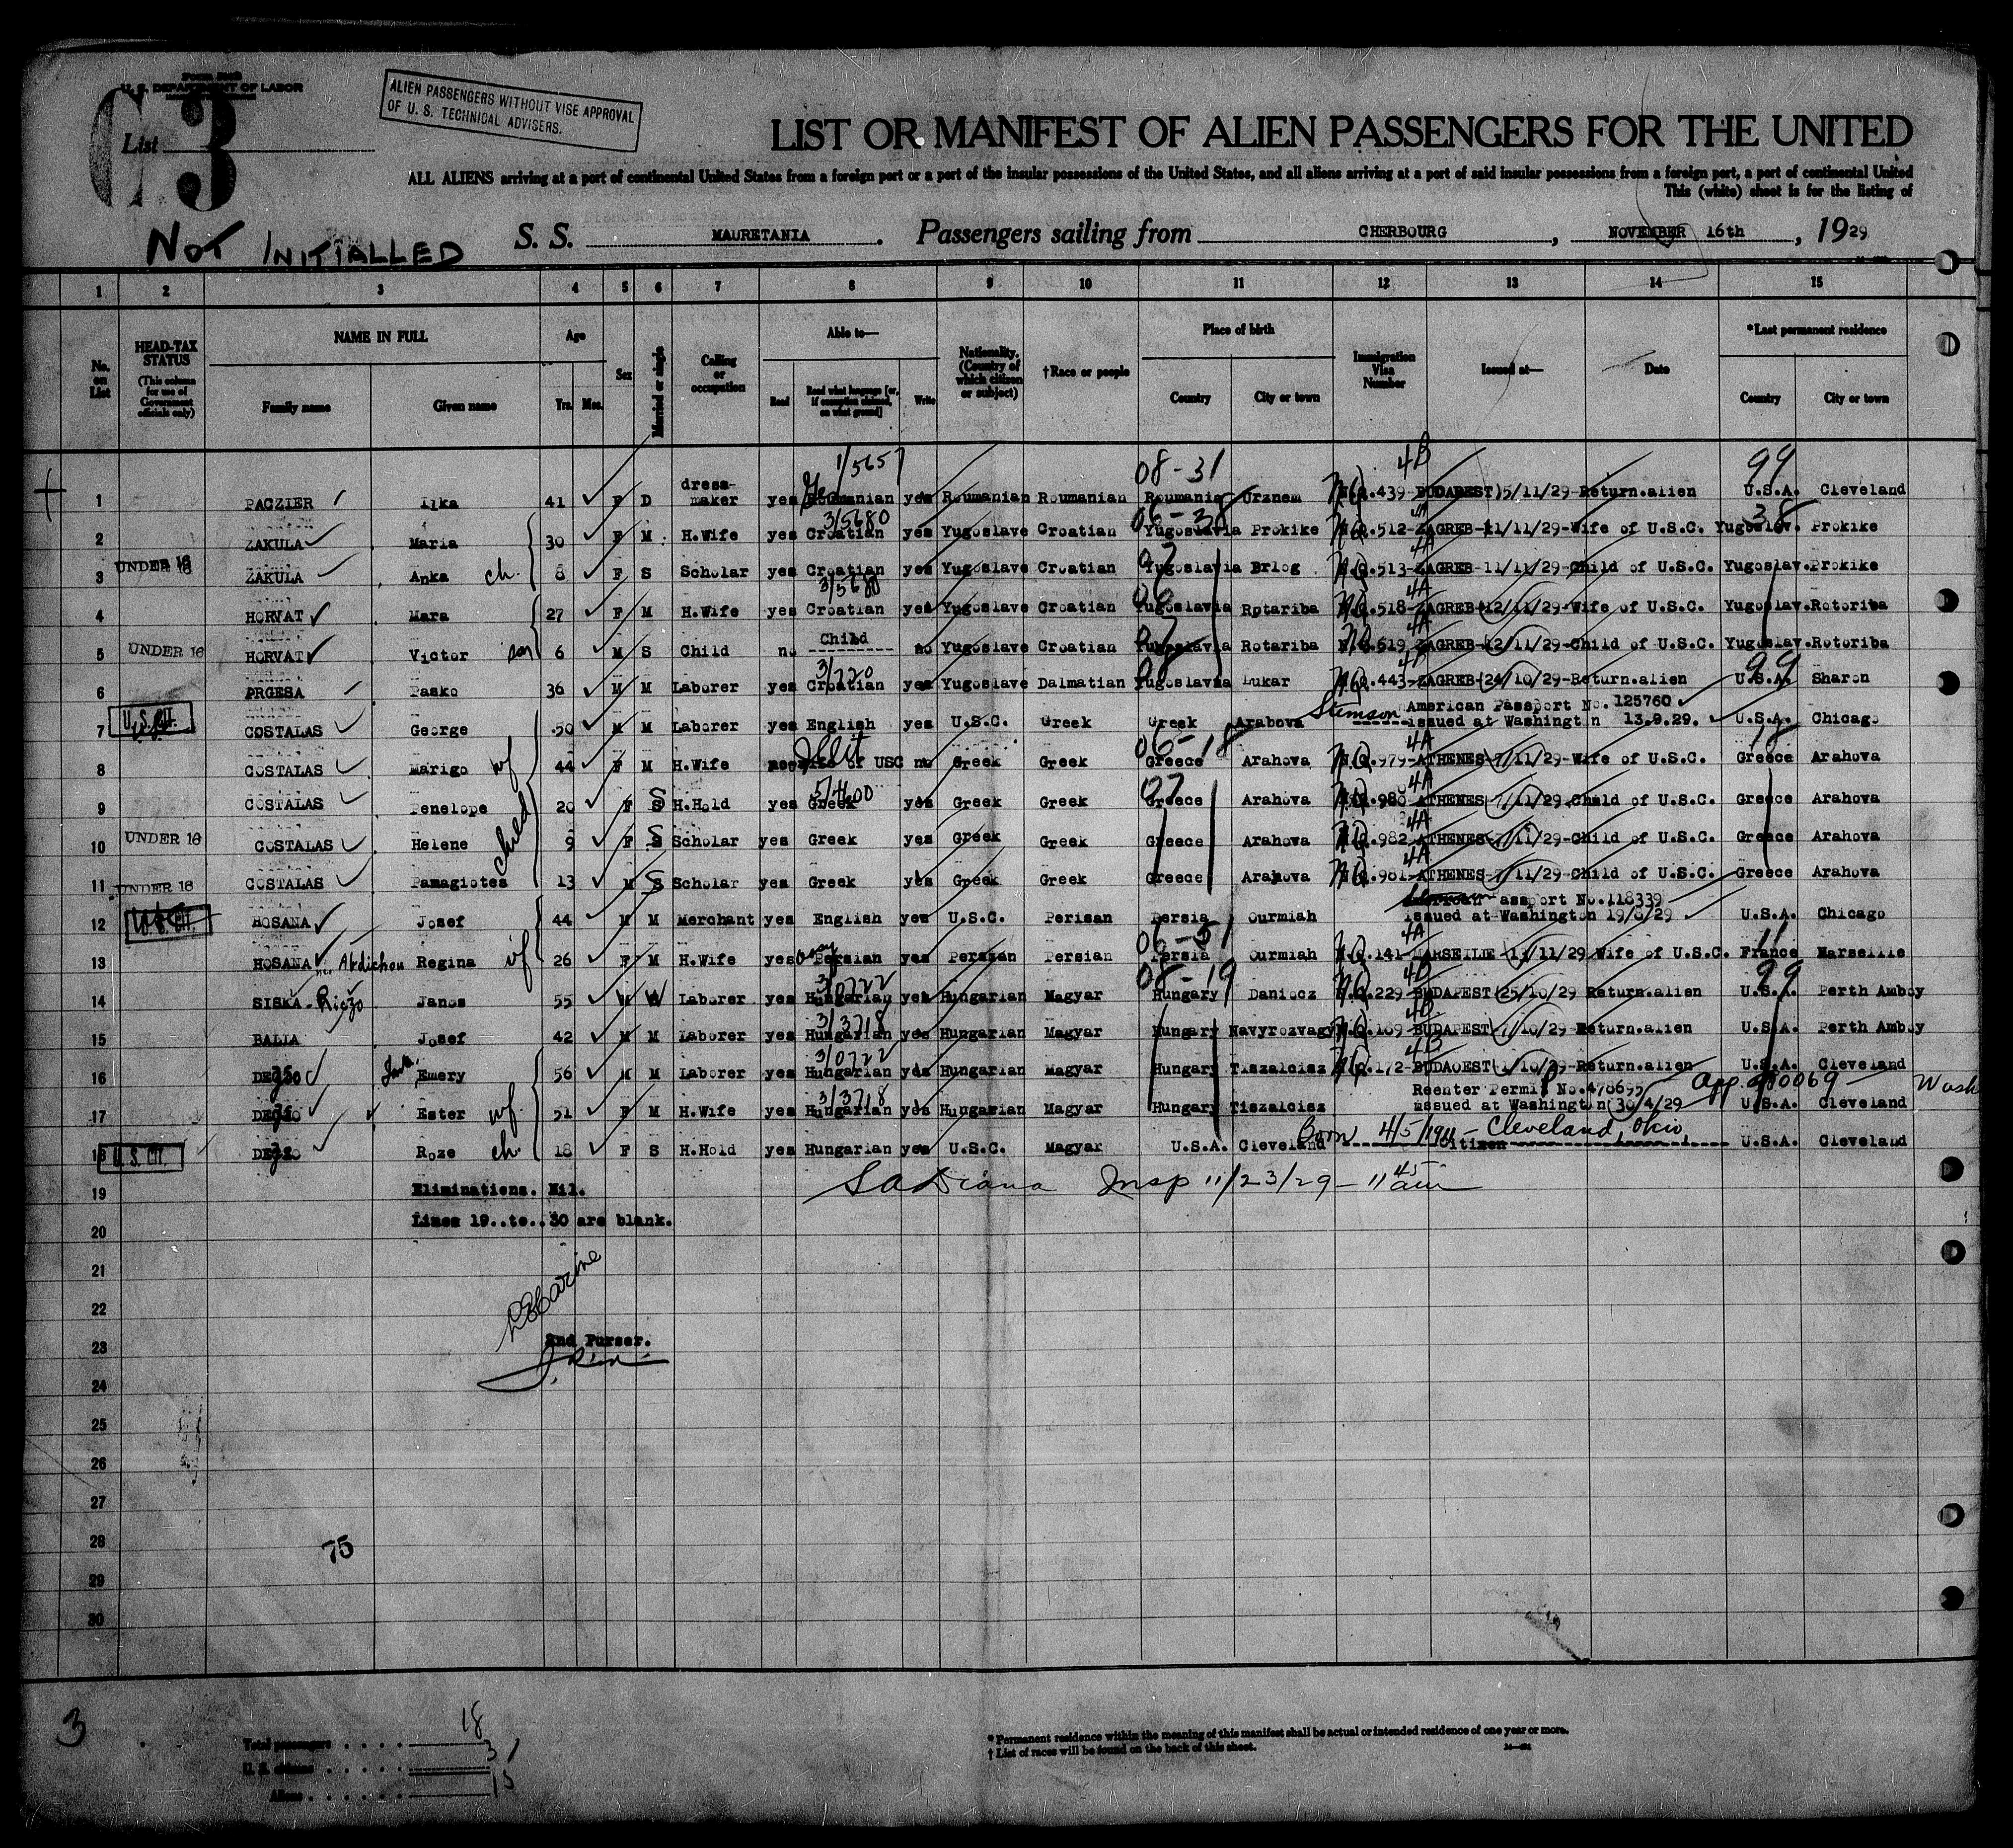 Form 500B
U. S. DEPARTMENT OF LABOR
3
List
ALIEN PASSENGERS WITHOUT VISE APPROVAL
OF U. S. TECHNICAL ADVISERS.
LIST OR MANIFEST OF ALIEN PASSENGERS FOR THE UNITED
ALL ALIENS arriving at a port of continental United States from a foreign port or a port of the insular possessions of the United States, and all aliens arriving at a port of said insular possessions from a foreign port, a port of continental United
This (white) sheet is for the listing of
NOT INITIALLED
S. S. MAURETANIA. Passengers sailing from CHERBOURG, NOVEMBER 16th, 1929
1 2 3 4 5 6 7 8 9 10 11 12 13 14 15
No. on List
HEAD-TAX STATUS (This column for use of Government officials only)
NAME IN FULL
Family name Given name
Age
Yrs. Mos.
Sex
Married or single
Calling or occupation
Able to—
Read Read what language [or, if exemption claimed, on what ground] Write
Nationality. (Country of which citizen or subject)
†Race or people
Place of birth
Country City or town
Immigration Visa Number
Issued at—
Date
*Last permanent residence
Country City or town
1/5657 08-31 4B 99
1 PACZIER Ilka 41 F D dress-maker yes Roumanian yes Roumanian Roumanian Roumania Urznem 439-BUDAPEST 5/11/29-Return.alien U.S.A. Cleveland
3/5680 06-38 4A 38
2 ZAKULA Maria 30 F M H.Wife yes Croatian yes Yugoslave Croatian Yugoslavia Prokike 512-ZAGREB-11/11/29-Wife of U.S.C. Yugoslav. Prokike
07 4A
3 UNDER 16 ZAKULA Anka ch. 8 F S Scholar yes Croatian yes Yugoslave Croatian Yugoslavia Brlog 513-ZAGREB-11/11/29-Child of U.S.C. Yugoslav. Prokike
3/5680 06 4A
4 HORVAT Mara 27 F M H.Wife yes Croatian yes Yugoslave Croatian Yugoslavia Rotariba 518-ZAGREB-12/11/29-Wife of U.S.C. Yugoslav. Rotoriba
07 4A
5 UNDER 16 HORVAT Victor son 6 M S Child no Child no Yugoslave Croatian Yugoslavia Rotariba 519 ZAGREB-12/11/29-Child of U.S.C. Yugoslav. Rotoriba
3/720 08 4B 99
6 PRGESA Pasko 36 M M Laborer yes Croatian yes Yugoslave Dalmatian Yugoslavia Lukar 443-ZAGREB-24/10/29-Return.alien U.S.A. Sharon
7 U.S.CIT. COSTALAS George 50 M M Laborer yes English yes U.S.C. Greek Greek Arabova Stimson American Passport No. 125760 issued at Washington 13.9.29. U.S.A. Chicago
06-18 4A 18
8 COSTALAS Marigo wf 44 F M H.Wife Wife of USC no Greek Greek Greece Arahova 979-ATHENES-7/11/29-Wife of U.S.C. Greece Arahova
07 4A
9 COSTALAS Penelope 20 F S H.Hold yes Greek yes Greek Greek Greece Arahova 980-ATHENES-7/11/29-Child of U.S.C. Greece Arahova
4A
10 UNDER 16 COSTALAS Helene child 9 F S Scholar yes Greek yes Greek Greek Greece Arahova 982-ATHENES-7/11/29-Child of U.S.C. Greece Arahova
4A
11 UNDER 16 COSTALAS Panagiotes 13 M S Scholar yes Greek yes Greek Greek Greece Arahova 981-ATHENES-7/11/29-Child of U.S.C. Greece Arahova
12 U.S.CIT. HOSANA Josef 44 M M Merchant yes English yes U.S.C. Perisan Persia Ourmiah Passport No.118339 issued at Washington 19/8/29 U.S.A. Chicago
06-51 4A 11
13 HOSANA Abdichou Regina wf 26 F M H.Wife yes Persian yes Persian Persian Persia Ourmiah 141-MARSEILLE 13/11/29 Wife of U.S.C. France Marseille
3/0722 08-19 4B 99
14 SISKA Riczo Janos 55 M W Laborer yes Hungarian yes Hungarian Magyar Hungary Daniocz 229-BUDAPEST 25/10/29 Return.alien U.S.A. Perth Amboy
3/3718 4B
15 BALLA Josef 42 M M Laborer yes Hungarian yes Hungarian Magyar Hungary Navyrozvagy 109-BUDAPEST-7/10/29-Return.alien U.S.A. Perth Amboy
3/0722 4B
16 Emery 56 M M Laborer yes Hungarian yes Hungarian Magyar Hungary Tiszalcisz 172-BUDAOEST-1/10/29-Return.alien U.S.A. Cleveland
3/3718
17 Ester wf. 51 F M H.Wife yes Hungarian yes Hungarian Magyar Hungary Tiszalcisz Reenter Permit No.470695 issued at Washington 30/4/29 App. U.S.A. Cleveland Wash
18 U.S. CIT. Roze ch. 18 F S H.Hold yes Hungarian yes U.S.C. Magyar U.S.A. Cleveland Born 4/5/1911 - Cleveland, Ohio Citizen U.S.A. Cleveland
19 Eliminations. Nil. Insp 11/23/29 - 11 45 am
20 Lines 19..to..30 are blank.
21
22
23 2nd Purser.
24
25
26
27
28 75
29
30
3
Total passengers 18
U. S. citizens 3
Aliens 15
* Permanent residence within the meaning of this manifest shall be actual or intended residence of one year or more.
† List of races will be found on the back of this sheet.